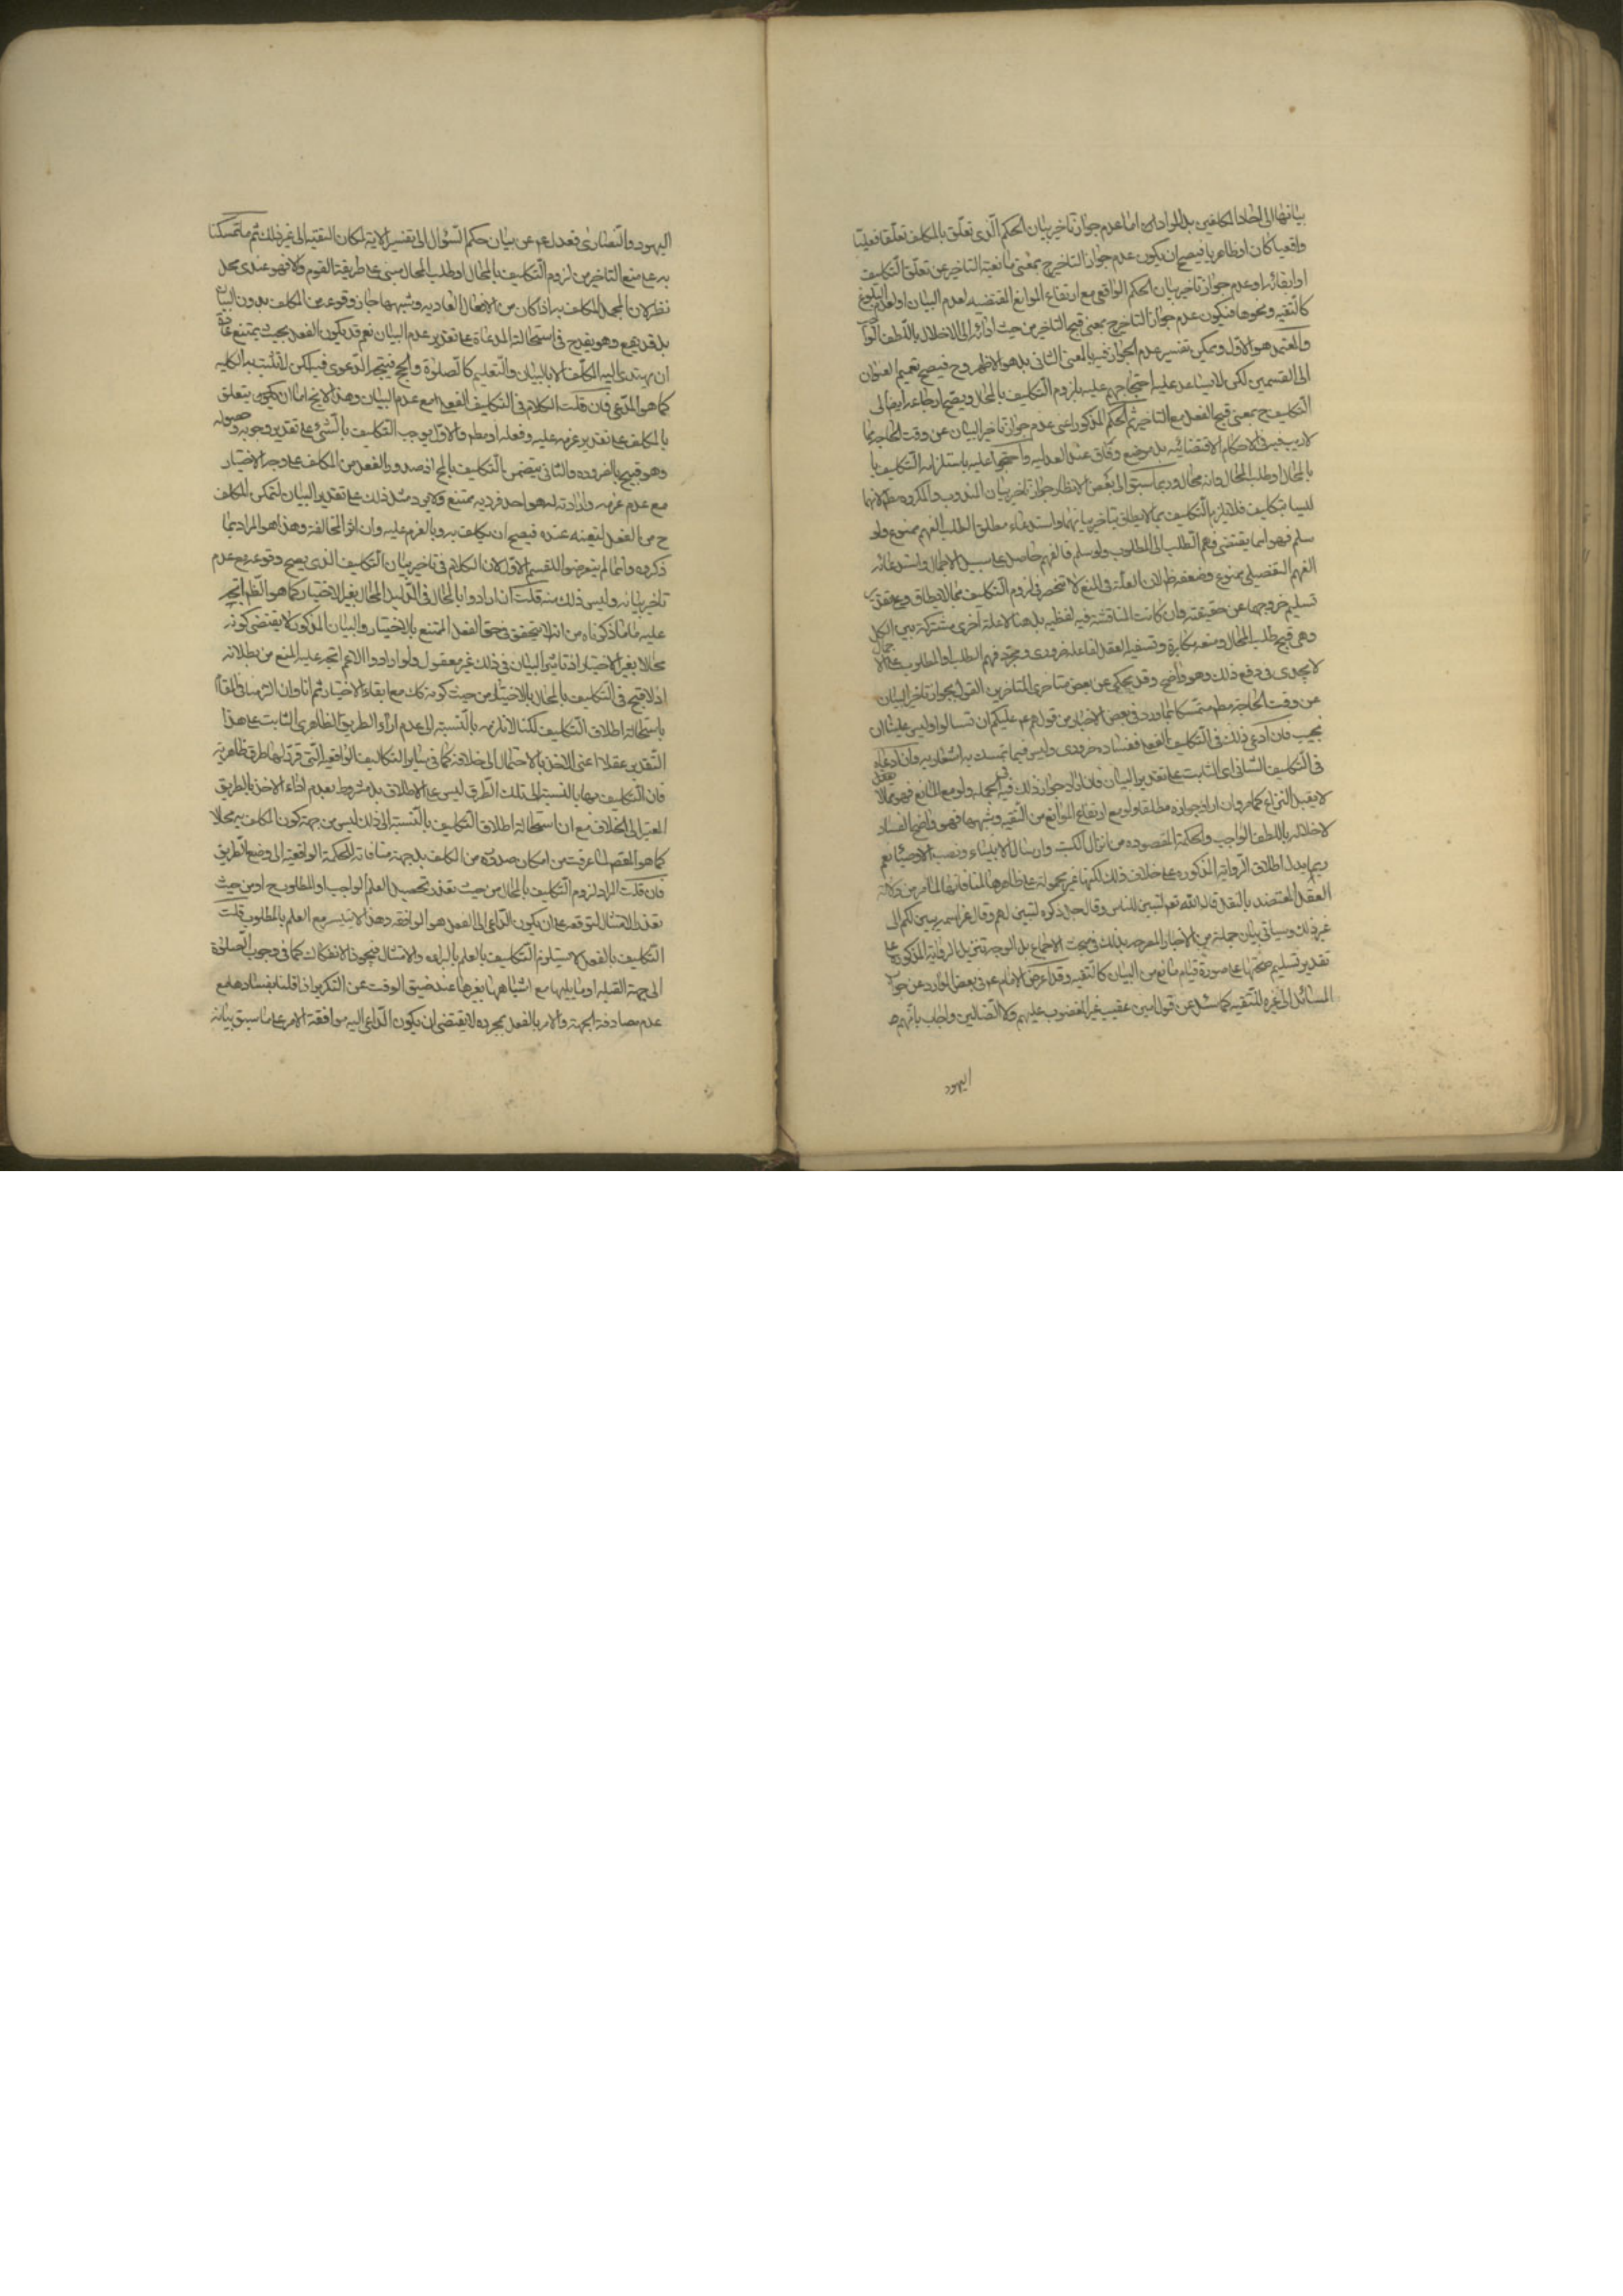 بيانها الى احاد المكلفين بل المراد اما عدم جواز تاخير بيان الحكم الذى تعلق بالمكلف تعلقا فعليا
واقعيا كان او ظاهريا فيصح ان يكون عدم جواز التاخير ح بمعنى مانعية التاخير عن تعلق التكليف
او ابقائه او عدم جواز تاخير بيان الحكم الواقعى مع ارتفاع الموانع المقتضيه لعدم البيان او لعدم البلوغ
كالتقيه ونحوها فيكون عدم جواز التاخير ح بمعنى قبح التاخير من حيث ادائه الى الاخلال باللطف الواجب
والمعتمد هو الاول ويمكن تفسير عدم الجواز فيه بالمعنى الثانى بل هو الاظهر وح فيصح تعميم العنوان
الى القسمين لكن لا يساعد عليه احتجاجهم عليه بلزوم التكليف بالمحال ويصح ارجاعه ايضا الى
التكليف ح بمعنى قبح الفعل مع التاخير ثم الحكم المذكور اعنى عدم جواز تاخير البيان عن وقت الحاجة مما
لا ريب فيه فى الاحكام الاقتضائيه بل موضع وفاق عند العدليه واحتجوا عليه باستلزامه التكليف با
بالمحال او طلب المحال وانه محال وربما سبق الى بعض الانظار جواز تاخير بيان المندوب والمكروه مط لانهما
ليسا بتكليف فلا يلزم التكليف بما لا يطاق بتاخير بيانهما واستدعاء مطلق الطلب الفهم ممنوع ولو
سلم فهو انما يقتضى فهم الطلب لا المطلوب ولو سلم فالفهم حاصل على سبيل الاجمال واستدعائه
الفهم التفصيلى ممنوع وضعفه ظ لان العلة فى المنع لا تنحصر فى لزوم التكليف بما لا يطاق وعلى تقدير
تسليم خروجها عن حقيقته وان كانت المناقشة فيه لفظيه بل هنا لا علة اخرى مشتركة بين الكل
وهى قبح طلب المحال ومنعه مكابرة وتسفيه العقل لفاعله ضرورى ومجرد فهم الطلب او المطلوب على الاجمال
لا يجدى فى دفع ذلك وهو واضح وقد يحكى عن بعض متاخرى المتاخرين القول بجواز تاخير البيان
عن وقت الحاجة مط متمسكا بما ورد فى بعض الاخبار من قولهم ع عليكم ان تسالوا وليس علينا ان
نجيب فان ادعى ذلك فى التكليف الفعلى ففساده ضرورى وليس فيما تمسك به اشعار به وان ادعاه
فى التكليف الشانى اى الثابت على تقدير البيان فان اراد جواز ذلك فيه فى الجملة ولو مع المانع فهو مما لا
لا يقبل النزاع كما مر وان اراد جوازه مطلقا ولو مع ارتفاع الموانع من التقيه وشبهها فهو واضح الفساد
لاخلاله باللطف الواجب والحكمة المقصوده من انزال الكتب وارسال الانبياء ونصب الاوصياء نعم
ربما يدل اطلاق الرواية المذكوره على خلاف ذلك لكنها غير محمولة على ظاهرها لمنافاتها لما مر من دلالة
العقل المعتضد بالنقل قال الله تعم لتبين للناس وقال جل ذكره لتبين لهم وقال عز اسمه يبين لكم الى
غير ذلك وسياتى بيان جملة من الاخبار المصرحه بذلك فى مبحث الاجماع بل الوجه تنزيل الرواية المذكورة على
تقدير تسليم صحتها على صورة قيام مانع من البيان كالتقيه وقد اعرض الامام ع فى بعض الموارد عن جواب
المسائل الى غيره للتقيه كما سئل عن قول امين عقيب غير المغضوب عليهم ولا الضالين واجاب بانهم هم
اليهود
اليهود والنصارى فعدل ع عن بيان حكم السؤال الى تفسير الاية لمكان التقيه الى غير ذلك ثم ما تمسكنا
به على منع التاخير من لزوم التكليف بالمحال او طلب المحال مبنى على طريقة القوم والا فهو عندى محل
نظر لان المجمل المكلف به اذا كان من الافعال العاديه وشبهها جاز وقوعه من المكلف بدون البيان
بل قد يقع وهو يقدح فى استحالته المدعاة على تقدير عدم البيان نعم قد يكون الفعل بحيث يمتنع عادة
ان يهتدى اليه المكلف الا بالبيان والتعليم كالصلوة والحج فيتجه الدعوى فيه لكن لا تثبت به الكليه
كما هو المدعى فان قلت الكلام فى التكليف الفعلى مع عدم البيان وهذا لا يخ اما ان يكون يتعلق
بالمكلف على تقدير عزمه عليه وفعله او مط والاول يوجب التكليف بالشئ على تقدير وجوبه وحصوله
وهو قبيح بالضروره والثانى يتضمن التكليف بالمح اذ صدور الفعل من المكلف على وجه الاختيار
مع عدم عزمه وارادته له هو احد فرديه ممتنع ولا يرد مثل ذلك على تقدير البيان لتمكن المكلف
ح من الفعل لتعينه عنده فيصح ان يكلف به وبالعزم عليه وان اثر المخالفة وهذا هو المراد بما
ذكروه وانما لم يتعرضوا للقسم الاول لان الكلام فى تاخير بيان التكليف الذى يصح وقوعه مع عدم
تاخير بيانه وليس ذلك منه قلت ان ارادوا بالمحال فى الدليل المحال بغير الاختيار كما هو الظ اتجه
عليه ما ما ذكرناه من انه لا يتحقق فى حق الفعل الممتنع بالاختيار والبيان المذكور لا يقتضى كونه
محالا بغير الاختيار اذ تاثير البيان فى ذلك غير معقول ولو ارادوا الاعم اتجه عليه المنع من بطلانه
اذ لا قبح فى التكليف بالمحال بالاختيار من حيث كونه كك مع ابقاء الاختيار ثم انا وان التزمنا فى المقام
باستحالة اطلاق التكليف لكنا لا نلزمه بالنسبة الى عدم اداء الطريق الظاهرى الثابت على هذا
التقدير عقلا اعنى الاخذ بالاحتمال الى خلافه كما فى ساير التكاليف الواقعية التى قرر لها طرق ظاهرية
فان التكليف بها بالنسبة الى تلك الطرق ليس على الاطلاق بل مشروط بعدم اداء الاخذ بالطريق
المعتبر الى الخلاف مع ان استحالة اطلاق التكليف بالنسبة الى ذلك ليس من جهة كون المكلف به محالا
كما هو المقص لما عرفت من امكان صدوره من المكلف بل جهة منافاته للحكمة الواقعية الى وضع الطريق
فان قلت المراد لزوم التكليف بالمحال من حيث تعذر تحصيل العلم الواجب او المطلوب ح او من حيث
تعذر الامتثال لتوقفه على ان يكون الداعى الى الفعل هو الموافقه وهذا لا يتيسر مع العلم بالمطلوب قلت
التكليف بالفعل لا يستلزم التكليف بالعلم بالبرائه والامتثال فيجوز الانفكاك كما فى وجوب الصلوة
الى جهة القبله او ما يليها مع اشتباهها بغيرها عند ضيق الوقت عن التكرير اذا قلنا بفسادها مع
عدم مصادفة الجهة والامر بالفعل بمجرده لا يقتضى ان يكون الداعى اليه موافقة الامر على ما سبق بيانه